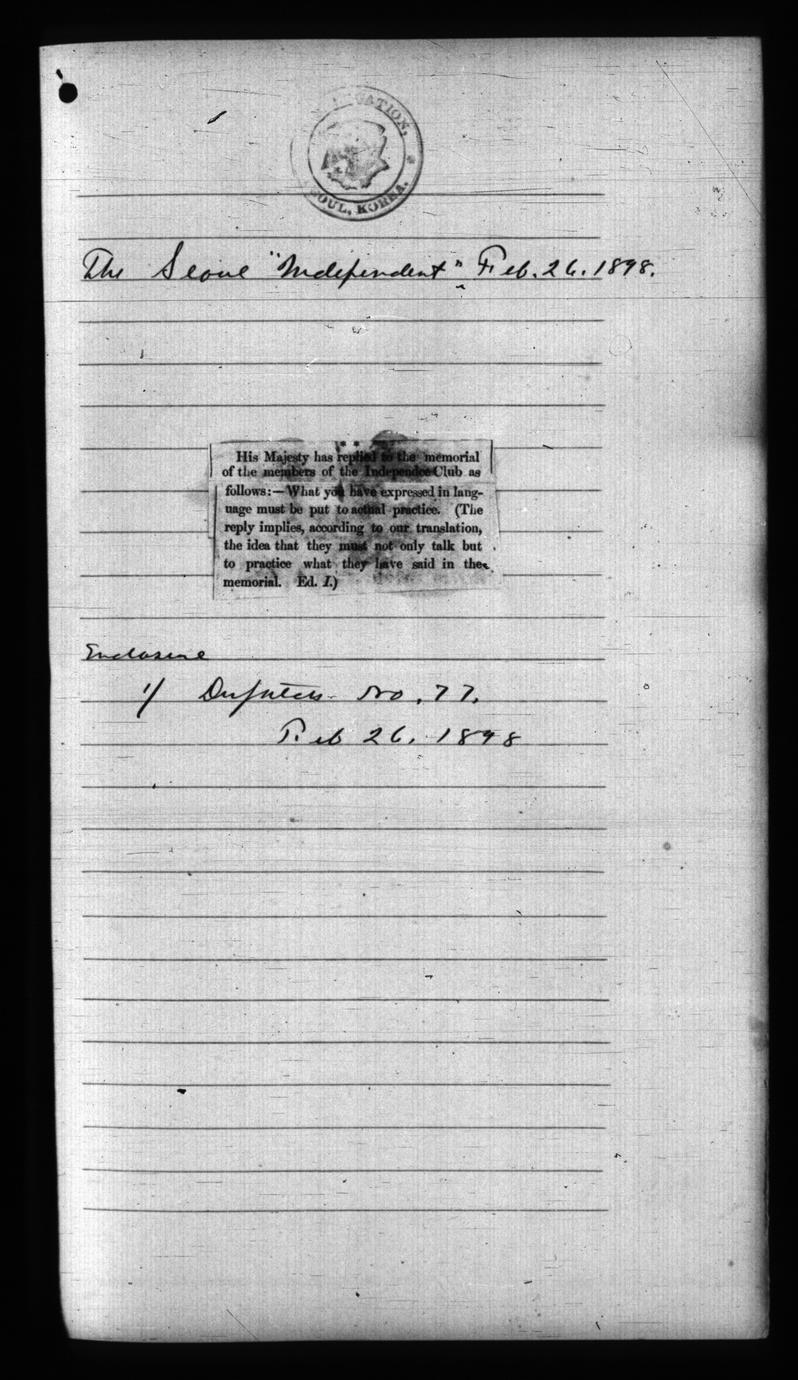 GATION,
SOUL, KOREA.
The Seoul "Independent" Feb. 26. 1898.
* *
His Majesty has replied to the memorial
of the members of the Independce Club as
follows:—What you have expressed in lang-
uage must be put to actual practice. (The
reply implies, according to our translation,
the idea that they must not only talk but
to practice what they have said in the
memorial. Ed. I.)
Enclosure
1/ Dispatch No. 77.
Feb 26. 1898